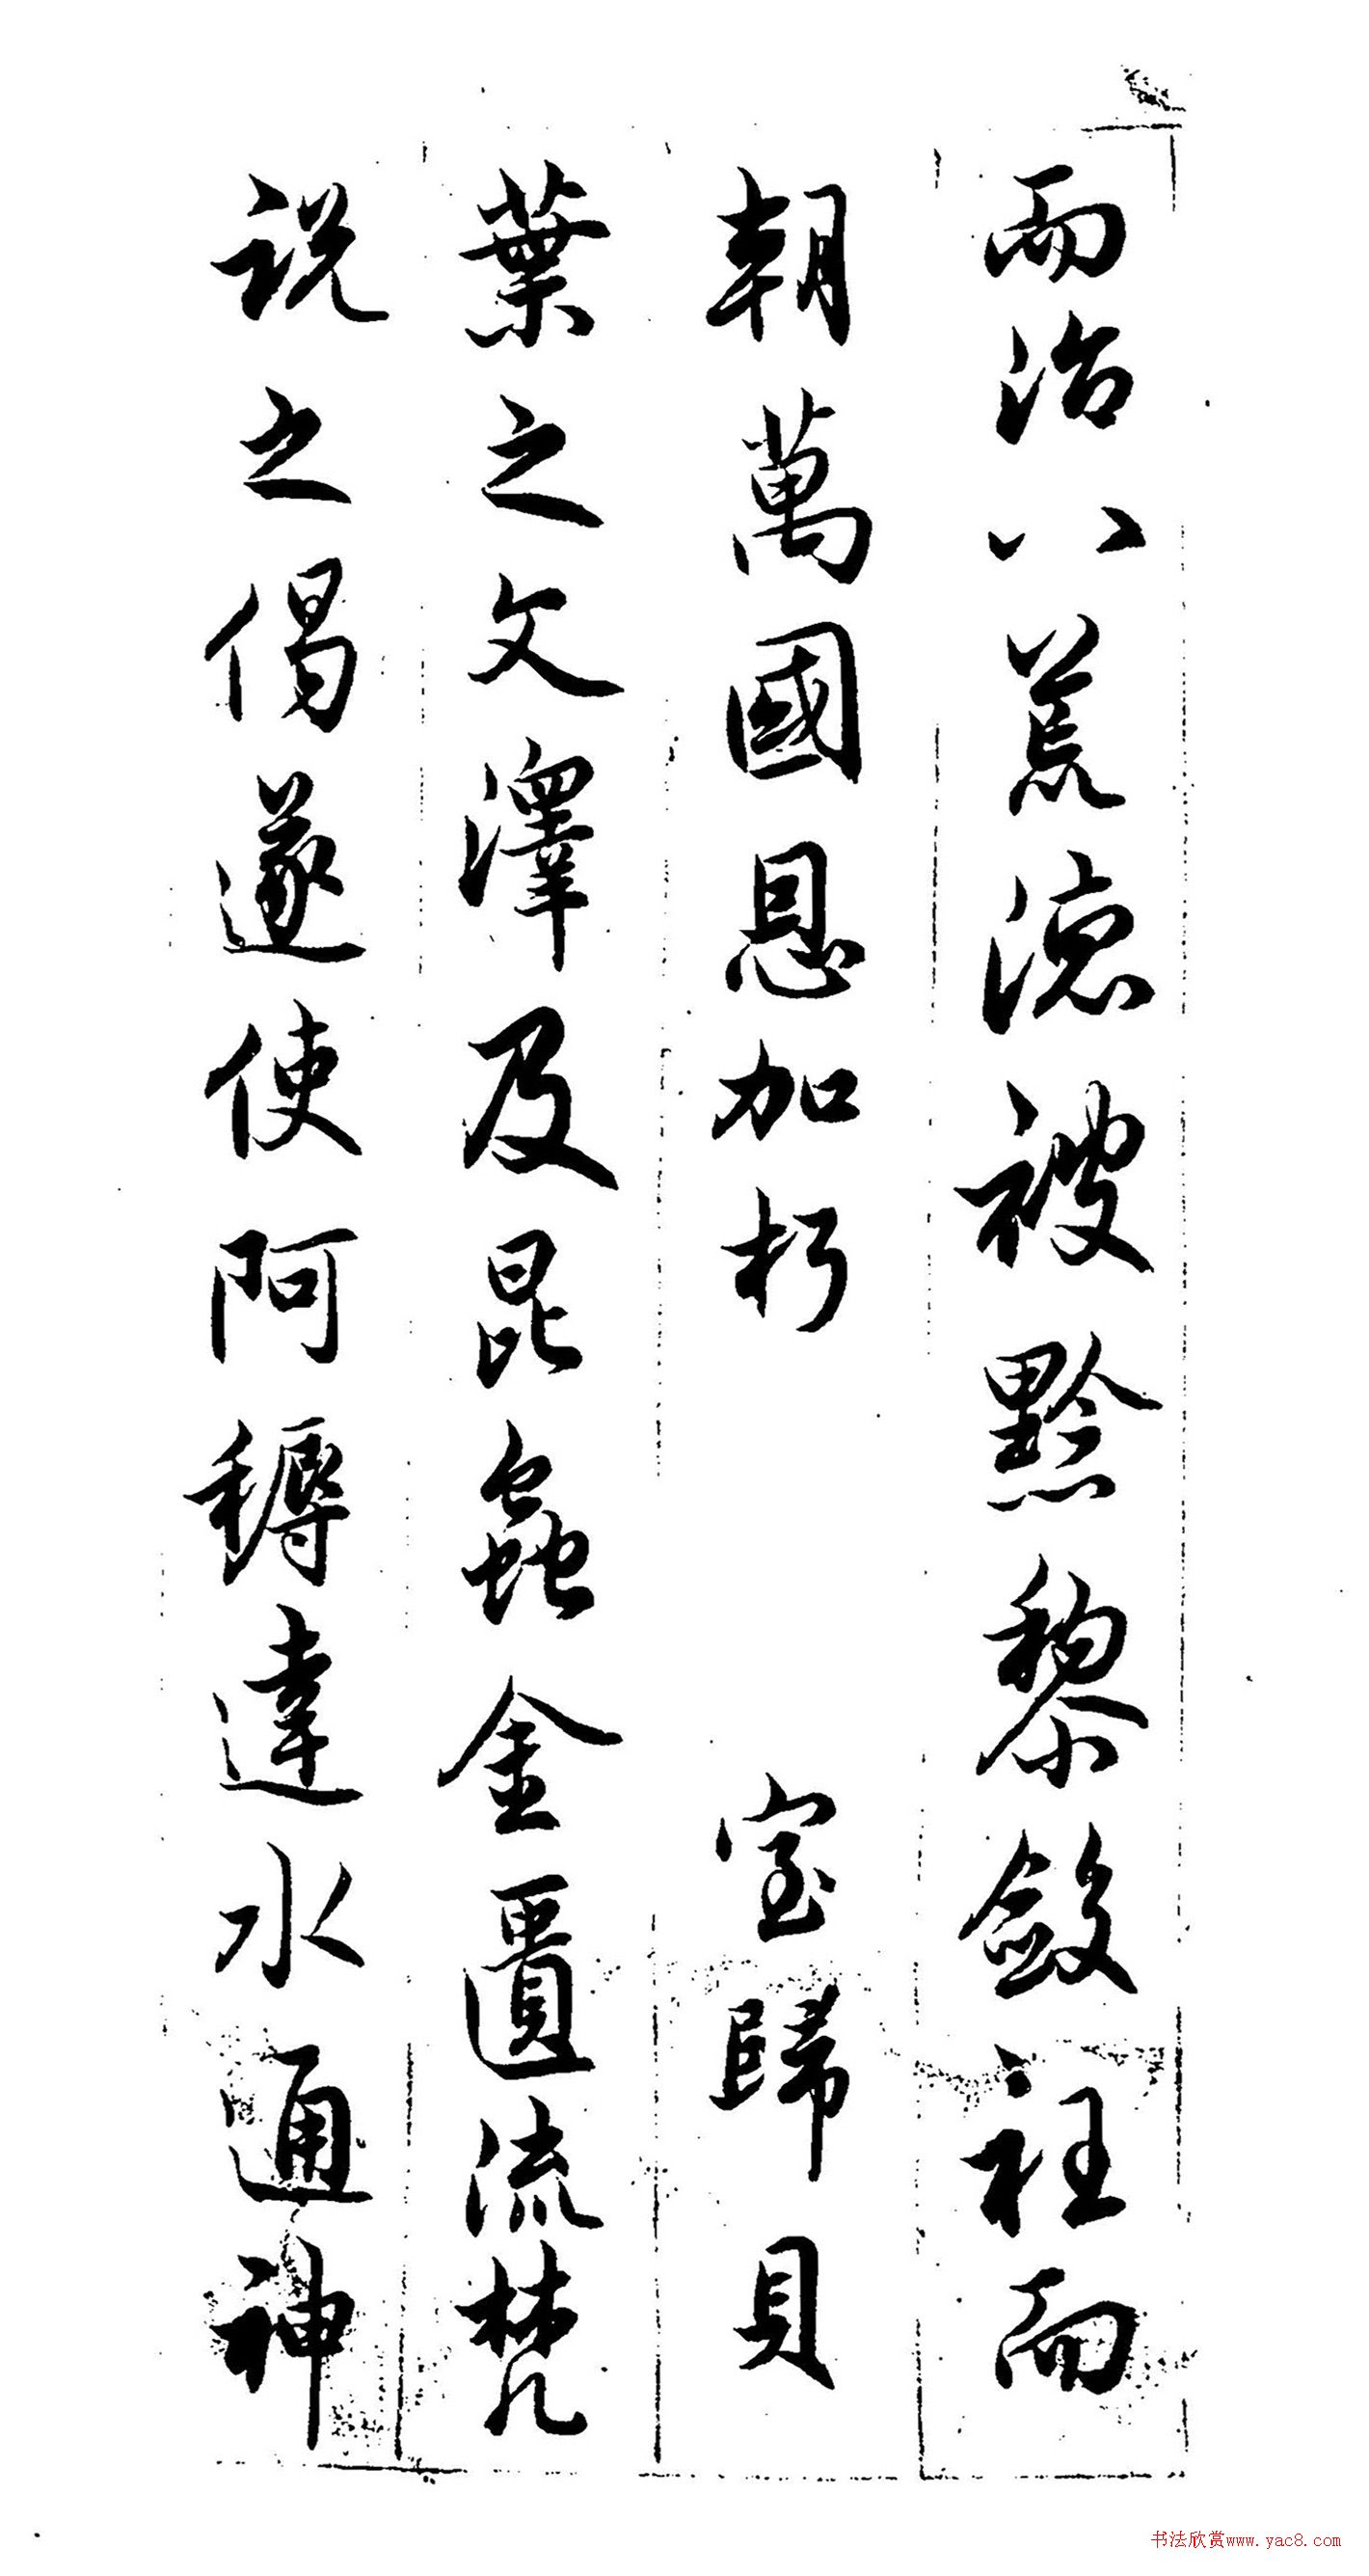 而治八荒德被黔黎斂衽而
朝萬國恩加朽室歸貝
葉之文澤及昆蟲金匱流梵
説之偈遂使阿耨達水通神
书法欣赏www.yac8.com